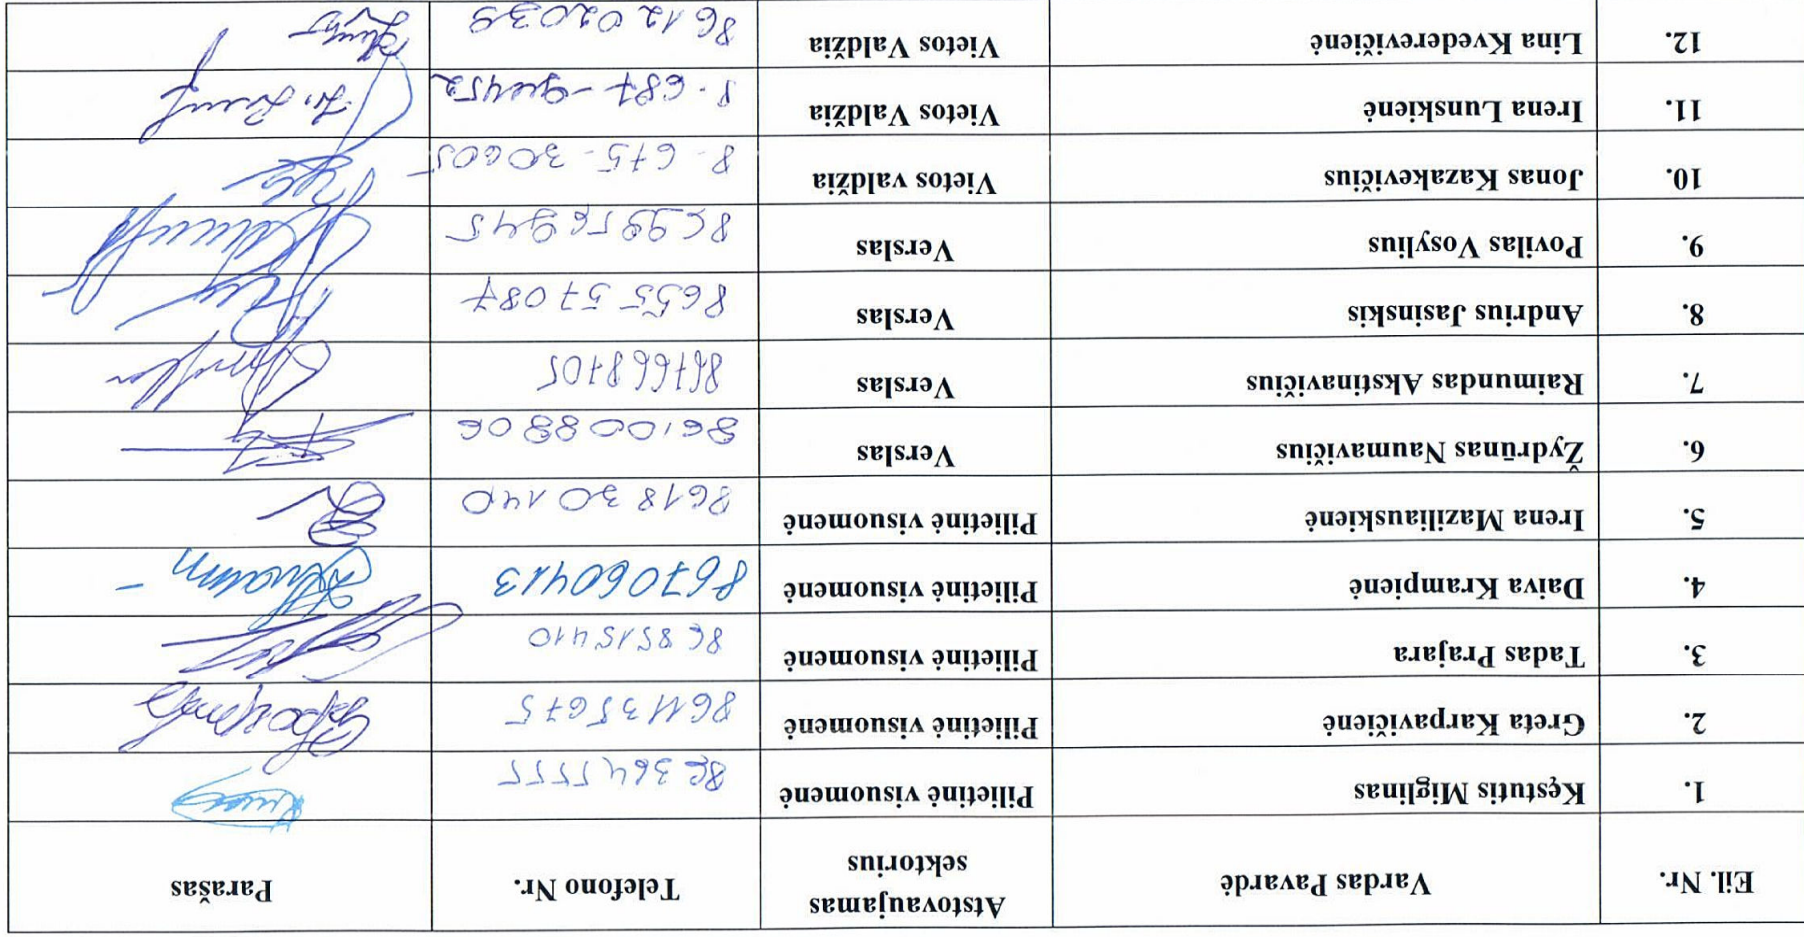 Eil. Nr. Vardas Pavardė Atstovaujamas sektorius Telefono Nr. Parašas
1. Kęstutis Miglinas Pilietinė visuomenė
2. Greta Karpavičienė Pilietinė visuomenė 861135675
3. Tadas Prajara Pilietinė visuomenė 868515410
4. Daiva Krampienė Pilietinė visuomenė
5. Irena Maziliauskienė Pilietinė visuomenė 861830140
6. Žydrūnas Naumavičius Verslas 861008806
7. Raimundas Akstinavičius Verslas 867668705
8. Andrius Jasinskis Verslas 865557087
9. Povilas Vosylius Verslas
10. Jonas Kazakevičius Vietos valdžia 8-675-30605
11. Irena Lunskienė Vietos Valdžia
12. Lina Kvederevičienė Vietos Valdžia 861202039